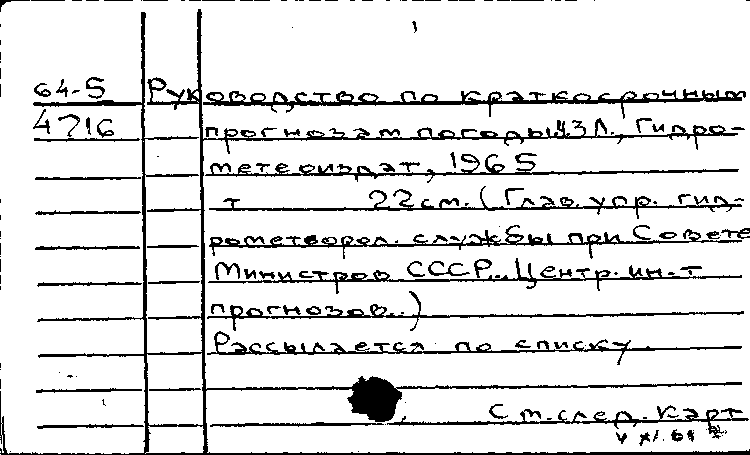 64-5 Руководство по краткосрочным
4716 прогнозам погоды. Л., Гидро-
метеоиздат, 1965
т 22 см. (Глав. упр. гид-
рометеорол. службы при Совете
Министров СССР. Центр. ин-т
прогнозов.)
Рассылается по списку.
См. след. карт